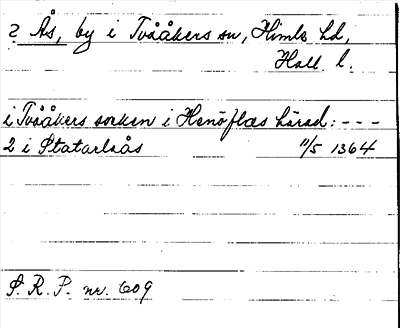 ? Ås, by i Tvååkers sn, Himle hd,
Hall. l.
i Tvååkers socken i Hsnöflæs härad: - - -
2 i Statarlsås 11/5 1364
S. R. P. nr. 609